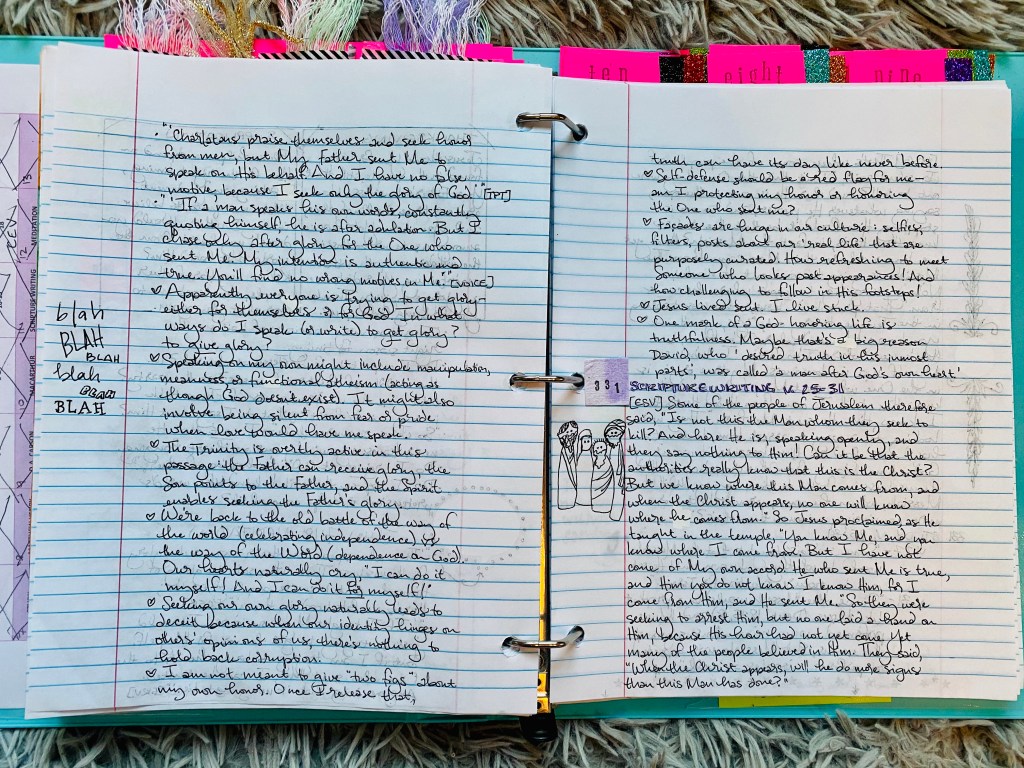 ten
eight
nine
• "'Charlatans praise themselves and seek honor
from men, but My Father sent Me to
speak on His behalf. And I have no false
motive, because I seek only the glory of God.'" [TPT]
• "'If a man speaks his own words, constantly
quoting himself, he is after adulation. But I
chase only after glory for the One who
sent Me. My intention is authentic and
true. You'll find no wrong motives in Me.'" [VOICE]
♡ Apparently everyone is trying to get glory–
either for themselves or for God. In what
ways do I speak (or write) to get glory?
to give glory?
♡ Speaking on my own might include manipulation,
meanness, or functional atheism (acting as
though God doesn't exist). It might also
involve being silent from fear or pride
when love would have me speak.
♡ The Trinity is overtly active in this
passage: the Father can receive glory, the
Son points to the Father, and the Spirit
enables seeking the Father's glory.
♡ We're back to the old battle of the way of
the world (celebrating independence) vs
the way of the Word (dependence on God).
Our hearts naturally cry, "I can do it
myself! And I can do it for myself!"
♡ Seeking our own glory naturally leads to
deceit because when our identity hinges on
others' opinions of us, there's nothing to
hold back corruption.
♡ I am not meant to give "two figs" about
my own honor. Once I release that,
blah
BLAH
BLAH
blah
BLAH
BLAH
13
12
MEDITATION
SCRIPTURE WRITING
MACARTHUR
truth can have its day like never before.
♡ Self-defense should be a red flag for me–
am I protecting my honor or honoring
the One who sent me?
♡ Facades are huge in our culture: selfies,
filters, posts about our 'real life' that are
purposely curated. How refreshing to meet
Someone who looks past appearances! And
how challenging to follow in His footsteps!
♡ Jesus lived sent. I live stuck.
♡ One mark of a God-honoring life is
truthfulness. Maybe that's a big reason
David, who 'desired truth in his inmost
parts', was called 'a man after God's own heart.'
331
SCRIPTURE WRITING v. 25-31
[ESV] Some of the people of Jerusalem therefore
said, "Is not this the Man whom they seek to
kill? And here He is, speaking openly, and
they say nothing to Him! Can it be that the
authorities really know that this is the Christ?
But we know where this Man comes from, and
when the Christ appears, no one will know
where he comes from." So Jesus proclaimed, as He
taught in the temple, "You know Me, and you
know where I come from. But I have not
come of My own accord. He who sent Me is true,
and Him you do not know. I know Him, for I
come from Him, and He sent Me." So they were
seeking to arrest Him, but no one laid a hand on
Him, because His hour had not yet come. Yet
many of the people believed in Him. They said,
"When the Christ appears, will he do more signs
than this Man has done?"